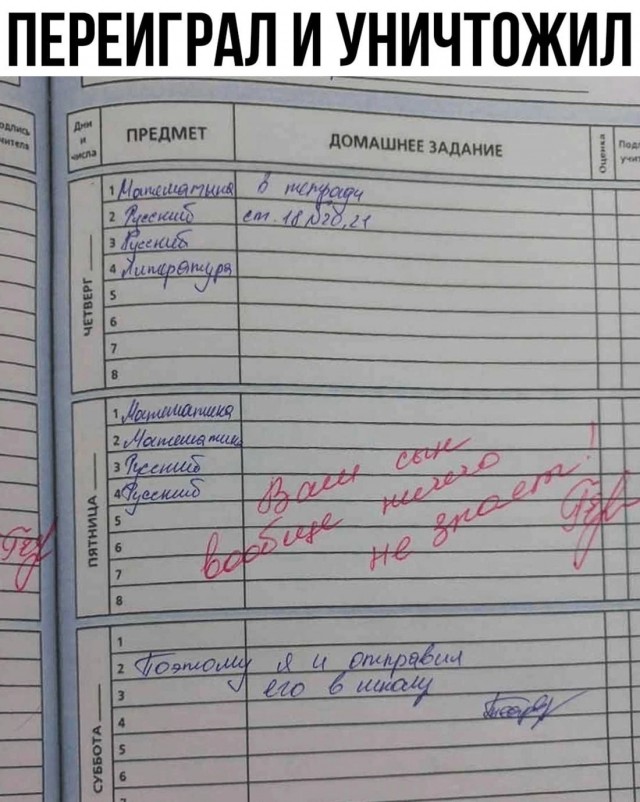 ПЕРЕИГРАЛ И УНИЧТОЖИЛ
Дни и числа
ПРЕДМЕТ
ДОМАШНЕЕ ЗАДАНИЕ
Оценка
ЧЕТВЕРГ
1 Математика в тетради
2 Русский ст. 18 №20,21
3 Русский
4 Литература
5
6
7
8
ПЯТНИЦА
1 Математика
2 Математика
3 Русский
4 Русский
5
6
7
8
Ваш сын
вообще ничего
не знает!
СУББОТА
1
2 Поэтому я и отправил
3 его в школу
4
5
6